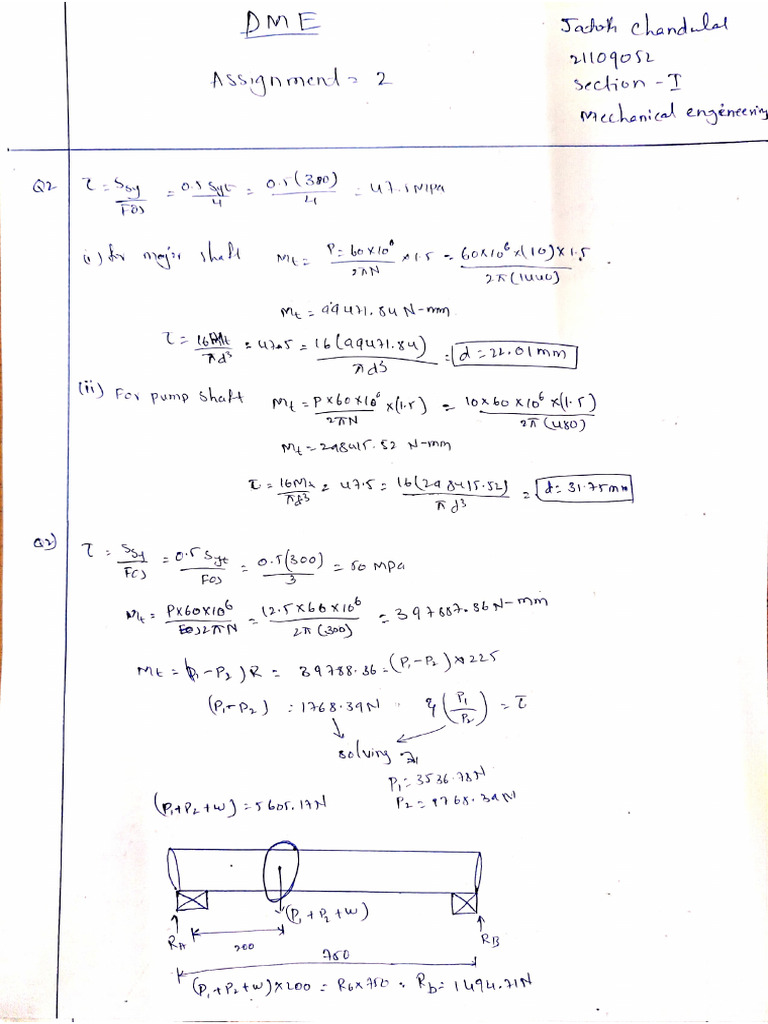 DME
Jatoth Chandulal
21109052
Section - I
Mechanical engineering
Assignment = 2
Q2 τ = Ssy/FOS = 0.5 Syt/4 = 0.5(380)/4 = 47.5 MPa
(i) for major shaft Mt = P = 60×10⁶/2πN × 1.5 = 60×10⁶×(10)×1.5/2π(1440)
Mt = 99471.84 N-mm
τ = 16Mt/πd³ = 47.5 = 16(99471.84)/πd³ = d = 22.01 mm
(ii) For pump shaft Mt = P×60×10⁶/2πN ×(1.5) = 10×60×10⁶×(1.5)/2π(480)
Mt = 298415.52 N-mm
τ = 16Mt/πd³ = 47.5 = 16(298415.52)/πd³ = d = 31.75mm
Q2) τ = Ssy/FOS = 0.5 Syt/FOS = 0.5(300)/3 = 50 MPa
Mt = P×60×10⁶/2πN = 12.5×60×10⁶/2π(300) = 397887.36 N-mm
Mt = (P₁-P₂)R = 39788.36 = (P₁-P₂)×225
(P₁-P₂) = 1768.39N & (P₁/P₂) = τ
solving
P₁ = 3536.78N
(P₁+P₂+W) = 5605.17N P₂ = 1768.39N
(P₁+P₂+W)
RA 200 RB
750
(P₁+P₂+W)×200 = Rb×750 = Rb = 1494.71N